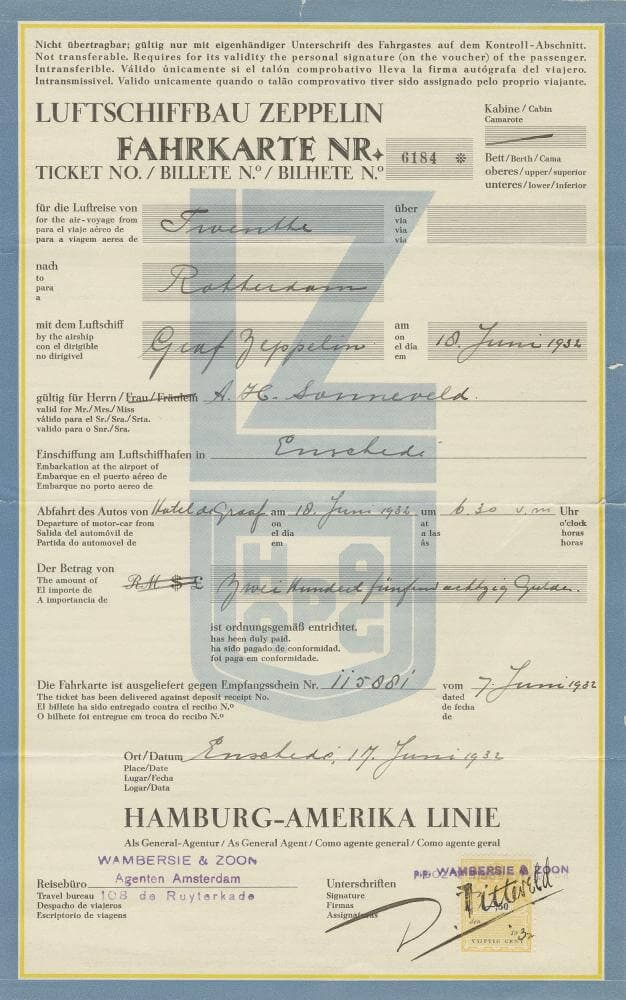 Nicht übertragbar; gültig nur mit eigenhändiger Unterschrift des Fahrgastes auf dem Kontroll-Abschnitt.
Not transferable. Requires for its validity the personal signature (on the voucher) of the passenger.
Intransferible. Válido únicamente si el talón comprobativo lleva la firma autógrafa del viajero.
Intransmissivel. Valido unicamente quando o talão comprovativo tiver sido assignado pelo proprio viajante.
LUFTSCHIFFBAU ZEPPELIN
FAHRKARTE NR.
6184 ※
TICKET NO. / BILLETE N.º / BILHETE N.º
Kabine / Cabin
Camarote
Bett / Berth / Cama
oberes / upper / superior
unteres / lower / inferior
für die Luftreise von Twenthe über
for the air-voyage from via
para el viaje aéreo de via
para a viagem aerea de via
nach Rotterdam
to
para
a
mit dem Luftschiff Graf Zeppelin am 18. Juni 1932
by the airship on
con el dirigible el dia
no dirigivel em
gültig für Herrn / Frau / Fräulein A. H. Sonneveld.
valid for Mr. / Mrs. / Miss
válido para el Sr. / Sra. / Srta.
valido para o Snr. / Sra.
Einschiffung am Luftschiffhafen in Enschedé
Embarkation at the airport of
Embarque en el puerto aéreo de
Embarque no porto aereo de
Abfahrt des Autos von Hotel de Graaf am 18. Juni 1932 um 6.30 v.m Uhr
Departure of motor-car from on at o'clock
Salida del automóvil de el dia a las horas
Partida do automovel de em ás horas
Der Betrag von RM $ £ Zwei Hundert fünfundachtzig Gulden.
The amount of
El importe de
A importancia de
ist ordnungsgemäß entrichtet.
has been duly paid.
ha sido pagado de conformidad.
foi paga em conformidade.
Die Fahrkarte ist ausgeliefert gegen Empfangsschein Nr. 115881 vom 7. Juni 1932
The ticket has been delivered against deposit receipt No. dated
El billete ha sido entregado contra el recibo N.º de fecha
O bilhete foi entregue em troca do recibo N.º de
Ort / Datum Enschedé, 17. Juni 1932
Place / Date
Lugar / Fecha
Logar / Data
HAMBURG-AMERIKA LINIE
Als General-Agentur / As General Agent / Como agente general / Como agente geral
WAMBERSIE & ZOON
Reisebüro Agenten Amsterdam
Travel bureau 108 de Ruyterkade
Despacho de viajeros
Escriptorio de viagens
p.p. WAMBERSIE & ZOON
Unterschriften
Signature
Firmas
Assignaturas
VIJFTIG CENT
LZ
HAPAG